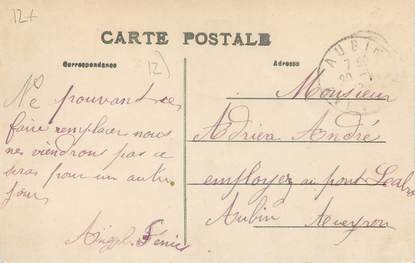 12+
CARTE POSTALE
Correspondance
12)
Adresse
AUBIN
Ne pouvant
faire remplacer nous
ne viendron pas ce
pour un autre
jour
Monsieur
Adrien André
employer au pont
Aubin Aveyron